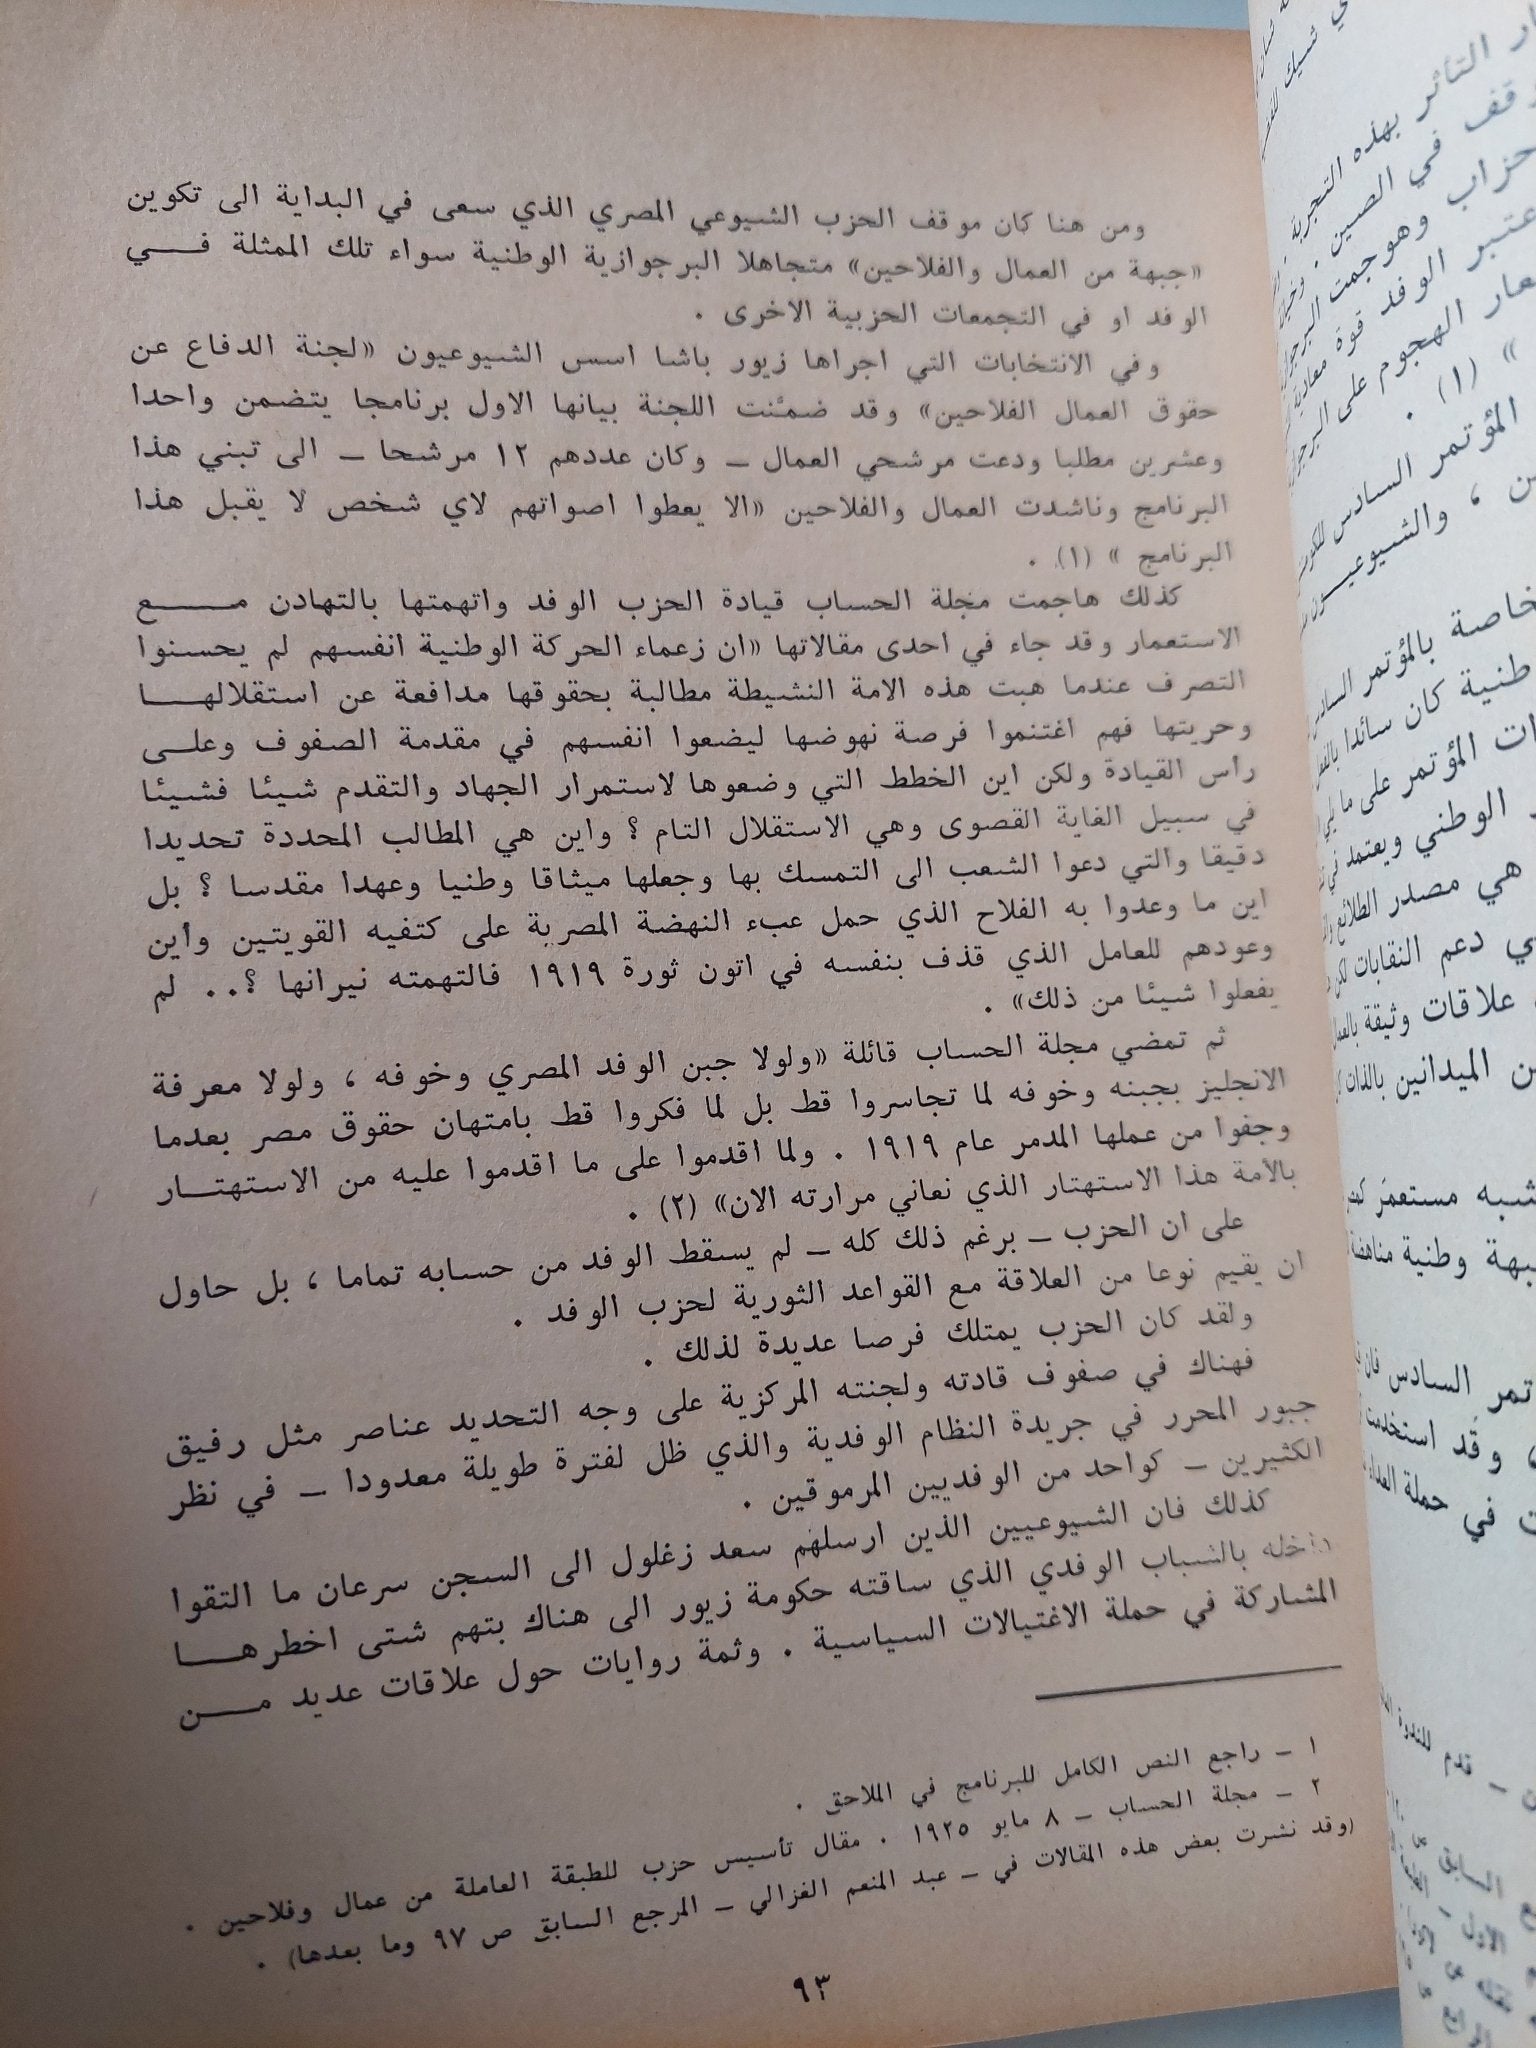 ومن هنا كان موقف الحزب الشيوعي المصري الذي سعى في البداية الى تكوين
«جبهة من العمال والفلاحين» متجاهلا البرجوازية الوطنية سواء تلك الممثلة فـــي
الوفد او في التجمعات الحزبية الاخرى .
وفي الانتخابات التي اجراها زيور باشا اسس الشيوعيون «لجنة الدفاع عن
حقوق العمال الفلاحين» وقد ضمَّنت اللجنة بيانها الاول برنامجا يتضمن واحدا
وعشرين مطلبا ودعت مرشحي العمال ــ وكان عددهم ١٢ مرشحا ــ الى تبني هذا
البرنامج وناشدت العمال والفلاحين «الا يعطوا اصواتهم لاي شخص لا يقبل هذا
البرنامج » (١) .
كذلك هاجمت مجلة الحساب قيادة الحزب الوفد واتهمتها بالتهادن مـــــع
الاستعمار وقد جاء في احدى مقالاتها «ان زعماء الحركة الوطنية انفسهم لم يحسنوا
التصرف عندما هبت هذه الامة النشيطة مطالبة بحقوقها مدافعة عن استقلالهـــا
وحريتها فهم اغتنموا فرصة نهوضها ليضعوا انفسهم في مقدمة الصفوف وعلـى
رأس القيادة ولكن اين الخطط التي وضعوها لاستمرار الجهاد والتقدم شيئا فشيئا
في سبيل الغاية القصوى وهي الاستقلال التام ؟ واين هي المطالب المحددة تحديدا
دقيقا والتي دعوا الشعب الى التمسك بها وجعلها ميثاقا وطنيا وعهدا مقدسا ؟ بل
اين ما وعدوا به الفلاح الذي حمل عبء النهضة المصرية على كتفيه القويتين وأين
وعودهم للعامل الذي قذف بنفسه في اتون ثورة ١٩١٩ فالتهمته نيرانها ؟.. لم
يفعلوا شيئا من ذلك» .
ثم تمضي مجلة الحساب قائلة «ولولا جبن الوفد المصري وخوفه ، ولولا معرفة
الانجليز بجبنه وخوفه لما تجاسروا قط بل لما فكروا قط بامتهان حقوق مصر بعدما
وجفوا من عملها المدمر عام ١٩١٩ . ولما اقدموا على ما اقدموا عليه من الاستهتـــار
بالأمة هذا الاستهتار الذي نعاني مرارته الان» (٢) .
على ان الحزب ــ برغم ذلك كله ــ لم يسقط الوفد من حسابه تماما ، بل حاول
ان يقيم نوعا من العلاقة مع القواعد الثورية لحزب الوفد .
ولقد كان الحزب يمتلك فرصا عديدة لذلك .
فهناك في صفوف قادته ولجنته المركزية على وجه التحديد عناصر مثل رفيق
جبور المحرر في جريدة النظام الوفدية والذي ظل لفترة طويلة معدودا ــ في نظر
الكثيرين ــ كواحد من الوفديين المرموقين .
كذلك فان الشيوعيين الذين ارسلهم سعد زغلول الى السجن سرعان ما التقوا
داخله بالشباب الوفدي الذي ساقته حكومة زيور الى هناك بتهم شتى اخطرهـــا
المشاركة في حملة الاغتيالات السياسية . وثمة روايات حول علاقات عديد مـــن
١ ــ راجع النص الكامل للبرنامج في الملاحق .
٢ ــ مجلة الحساب ــ ٨ مايو ١٩٢٥ . مقال تأسيس حزب للطبقة العاملة من عمال وفلاحين .
(وقد نشرت بعض هذه المقالات في ــ عبد المنعم الغزالي ــ المرجع السابق ص ٩٧ وما بعدها) .
٩٣
ار التأثر بهذه التجربة
قف في الصين .
حزاب وهوجمت
عتبر الوفد قوة معادية
عار الهجوم على
» (١) .
المؤتمر السادس
ن ، والشيوعيـــون
خاصة بالمؤتمر السادس
طنية كان سائدا بالفعل
ات المؤتمر على ما يلي
الوطني ويعتمد في
هي مصدر الطلائع
ي دعم النقابات لكن
علاقات وثيقة بالعمال
ن الميدانين بالذات
شبه مستعمر
جبهة وطنية مناهضة
تمر السادس فان
، وقد استخدمت
ت في حملة العداء